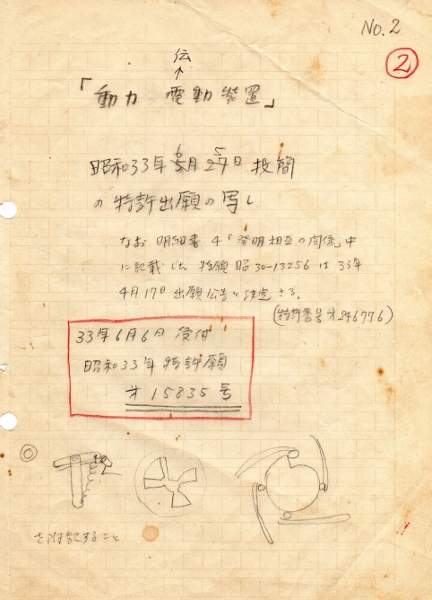 No.2
2
伝
「動力 電動装置」
6 5
昭和33年5月27日 投簡
の特許出願の写し
なお 明細書 4「発明相互の関係」中
に記載した 特願昭30-13256 は 33年
4月17日 出願公告と決定さる。
(特許番号 才246776)
33年6月6日 受付
昭和33年 特許願
才15835号
を附記すること